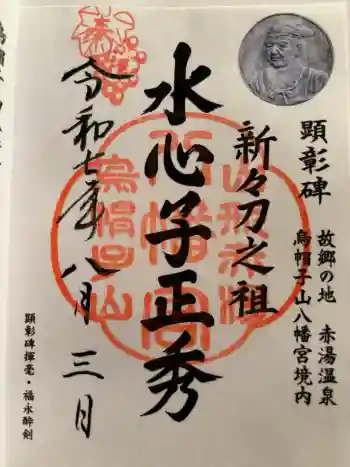 顕彰碑
故郷の地 赤湯温泉
烏帽子山八幡宮境内
新々刀之祖
水心子正秀
奉拝
令和七年八月三日
八幡宮
烏帽子山
顕彰碑揮毫・福永酔剣